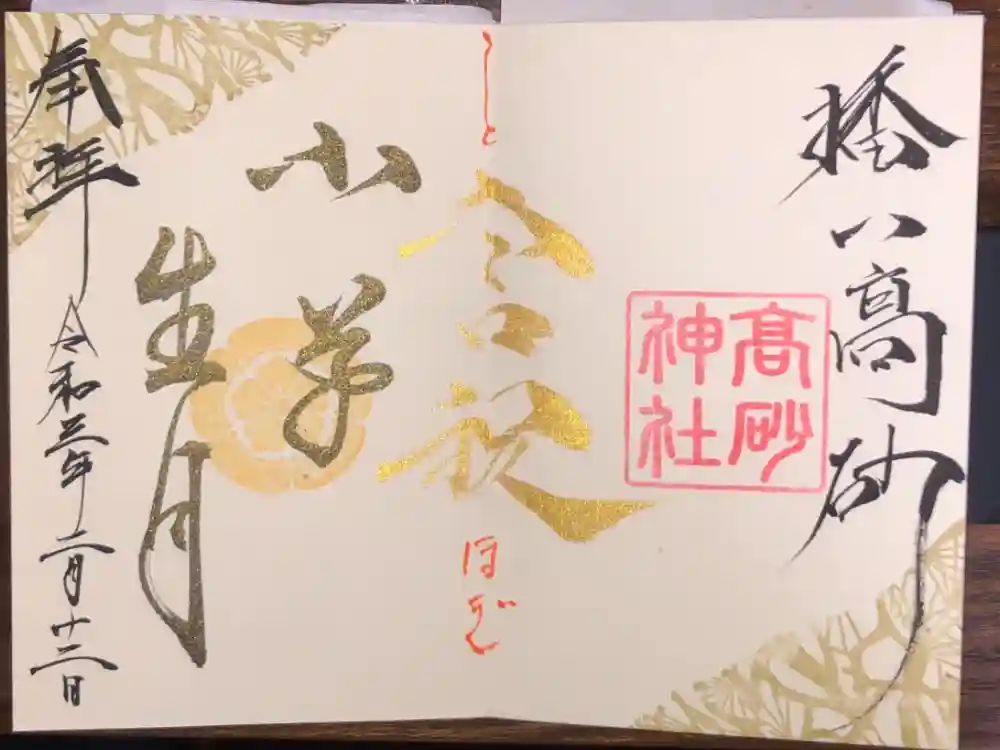 播州高砂
髙砂
神社
こと
言祝
ほぎ
小草
生月
奉拝 令和三年二月十二日